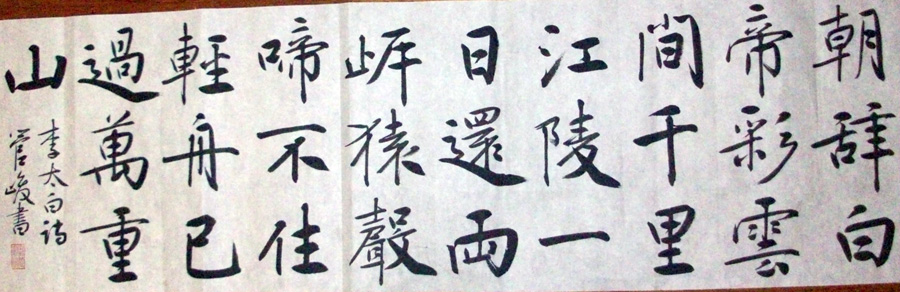 朝辞白
帝彩雲
間千里
江陵一
日還両
岸猿聲
啼不住
輕舟已
過萬重
山
李太白詩
管峻書